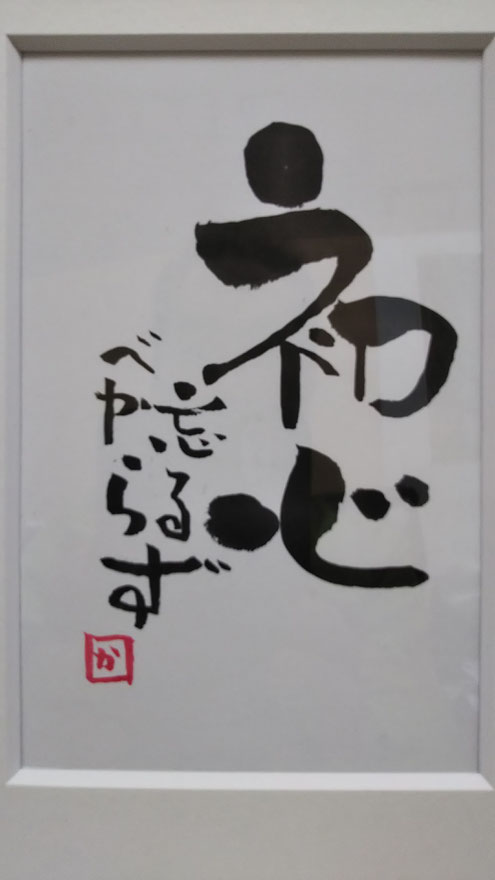 初心
忘る
べからず